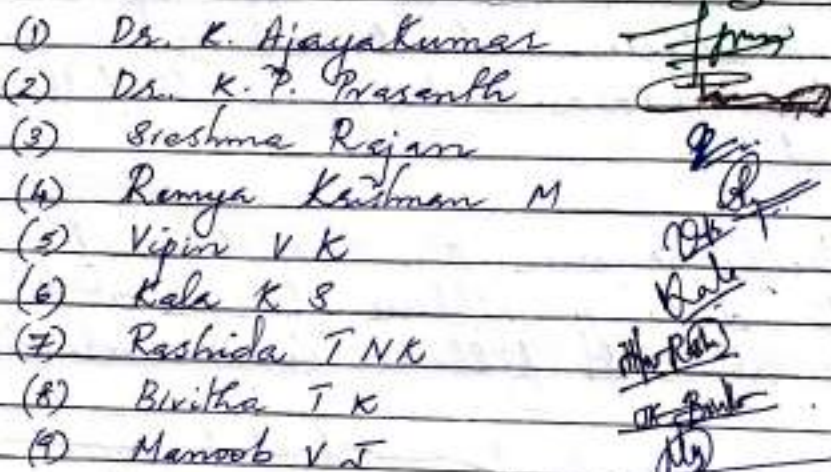 (1) Dr. K. Ajaya Kumar
(2) Dr. K. P. Prasanth
(3) Sreshma Rajan
(4) Remya Krishnan M
(5) Vipin V K
(6) Kala K S Kala
(7) Rashida T NK
(8) Bivitha T K
(9) Manoob V J